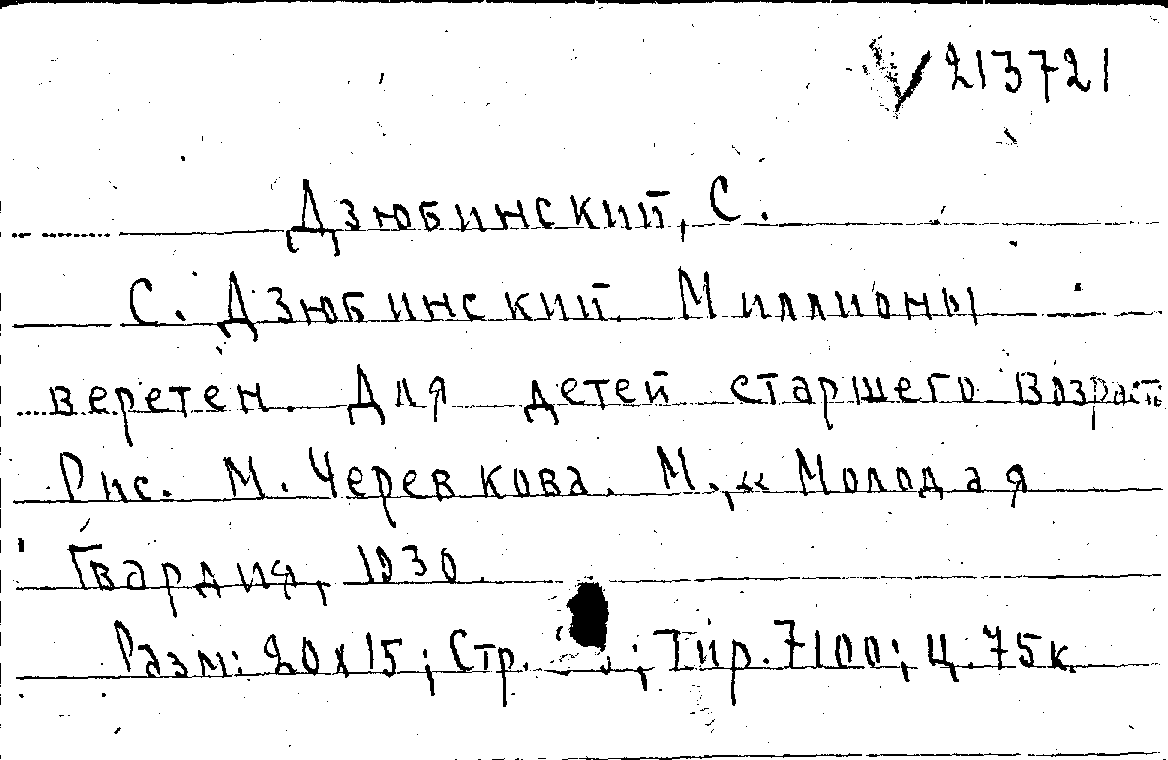 213721
Дзюбинский, С.
С. Дзюбинский. Миллионы
веретен. Для детей старшего возраста
Рис. М. Черевкова. М., «Молодая
Гвардия, 1930.
Разм: 20х15; Стр. ; Тир. 7100; ц. 75к.